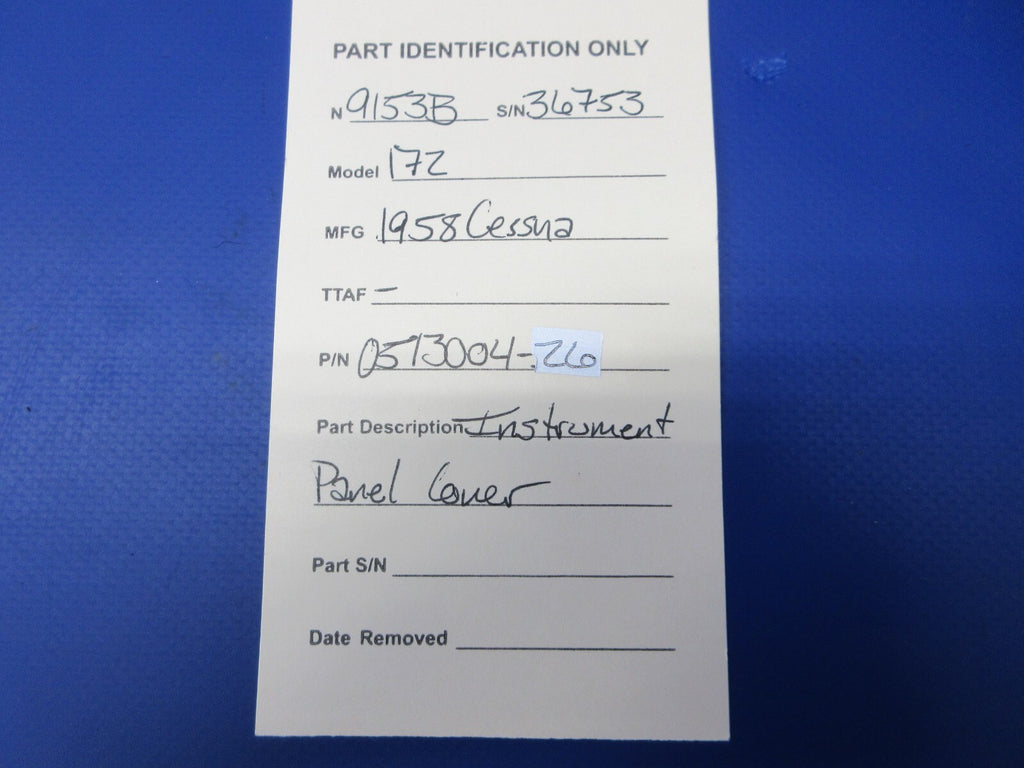 PART IDENTIFICATION ONLY
N 9153B S/N 36753
Model 172
MFG 1958 Cessna
TTAF –
P/N 0513004-26
Part Description Instrument
Panel Cover
Part S/N
Date Removed